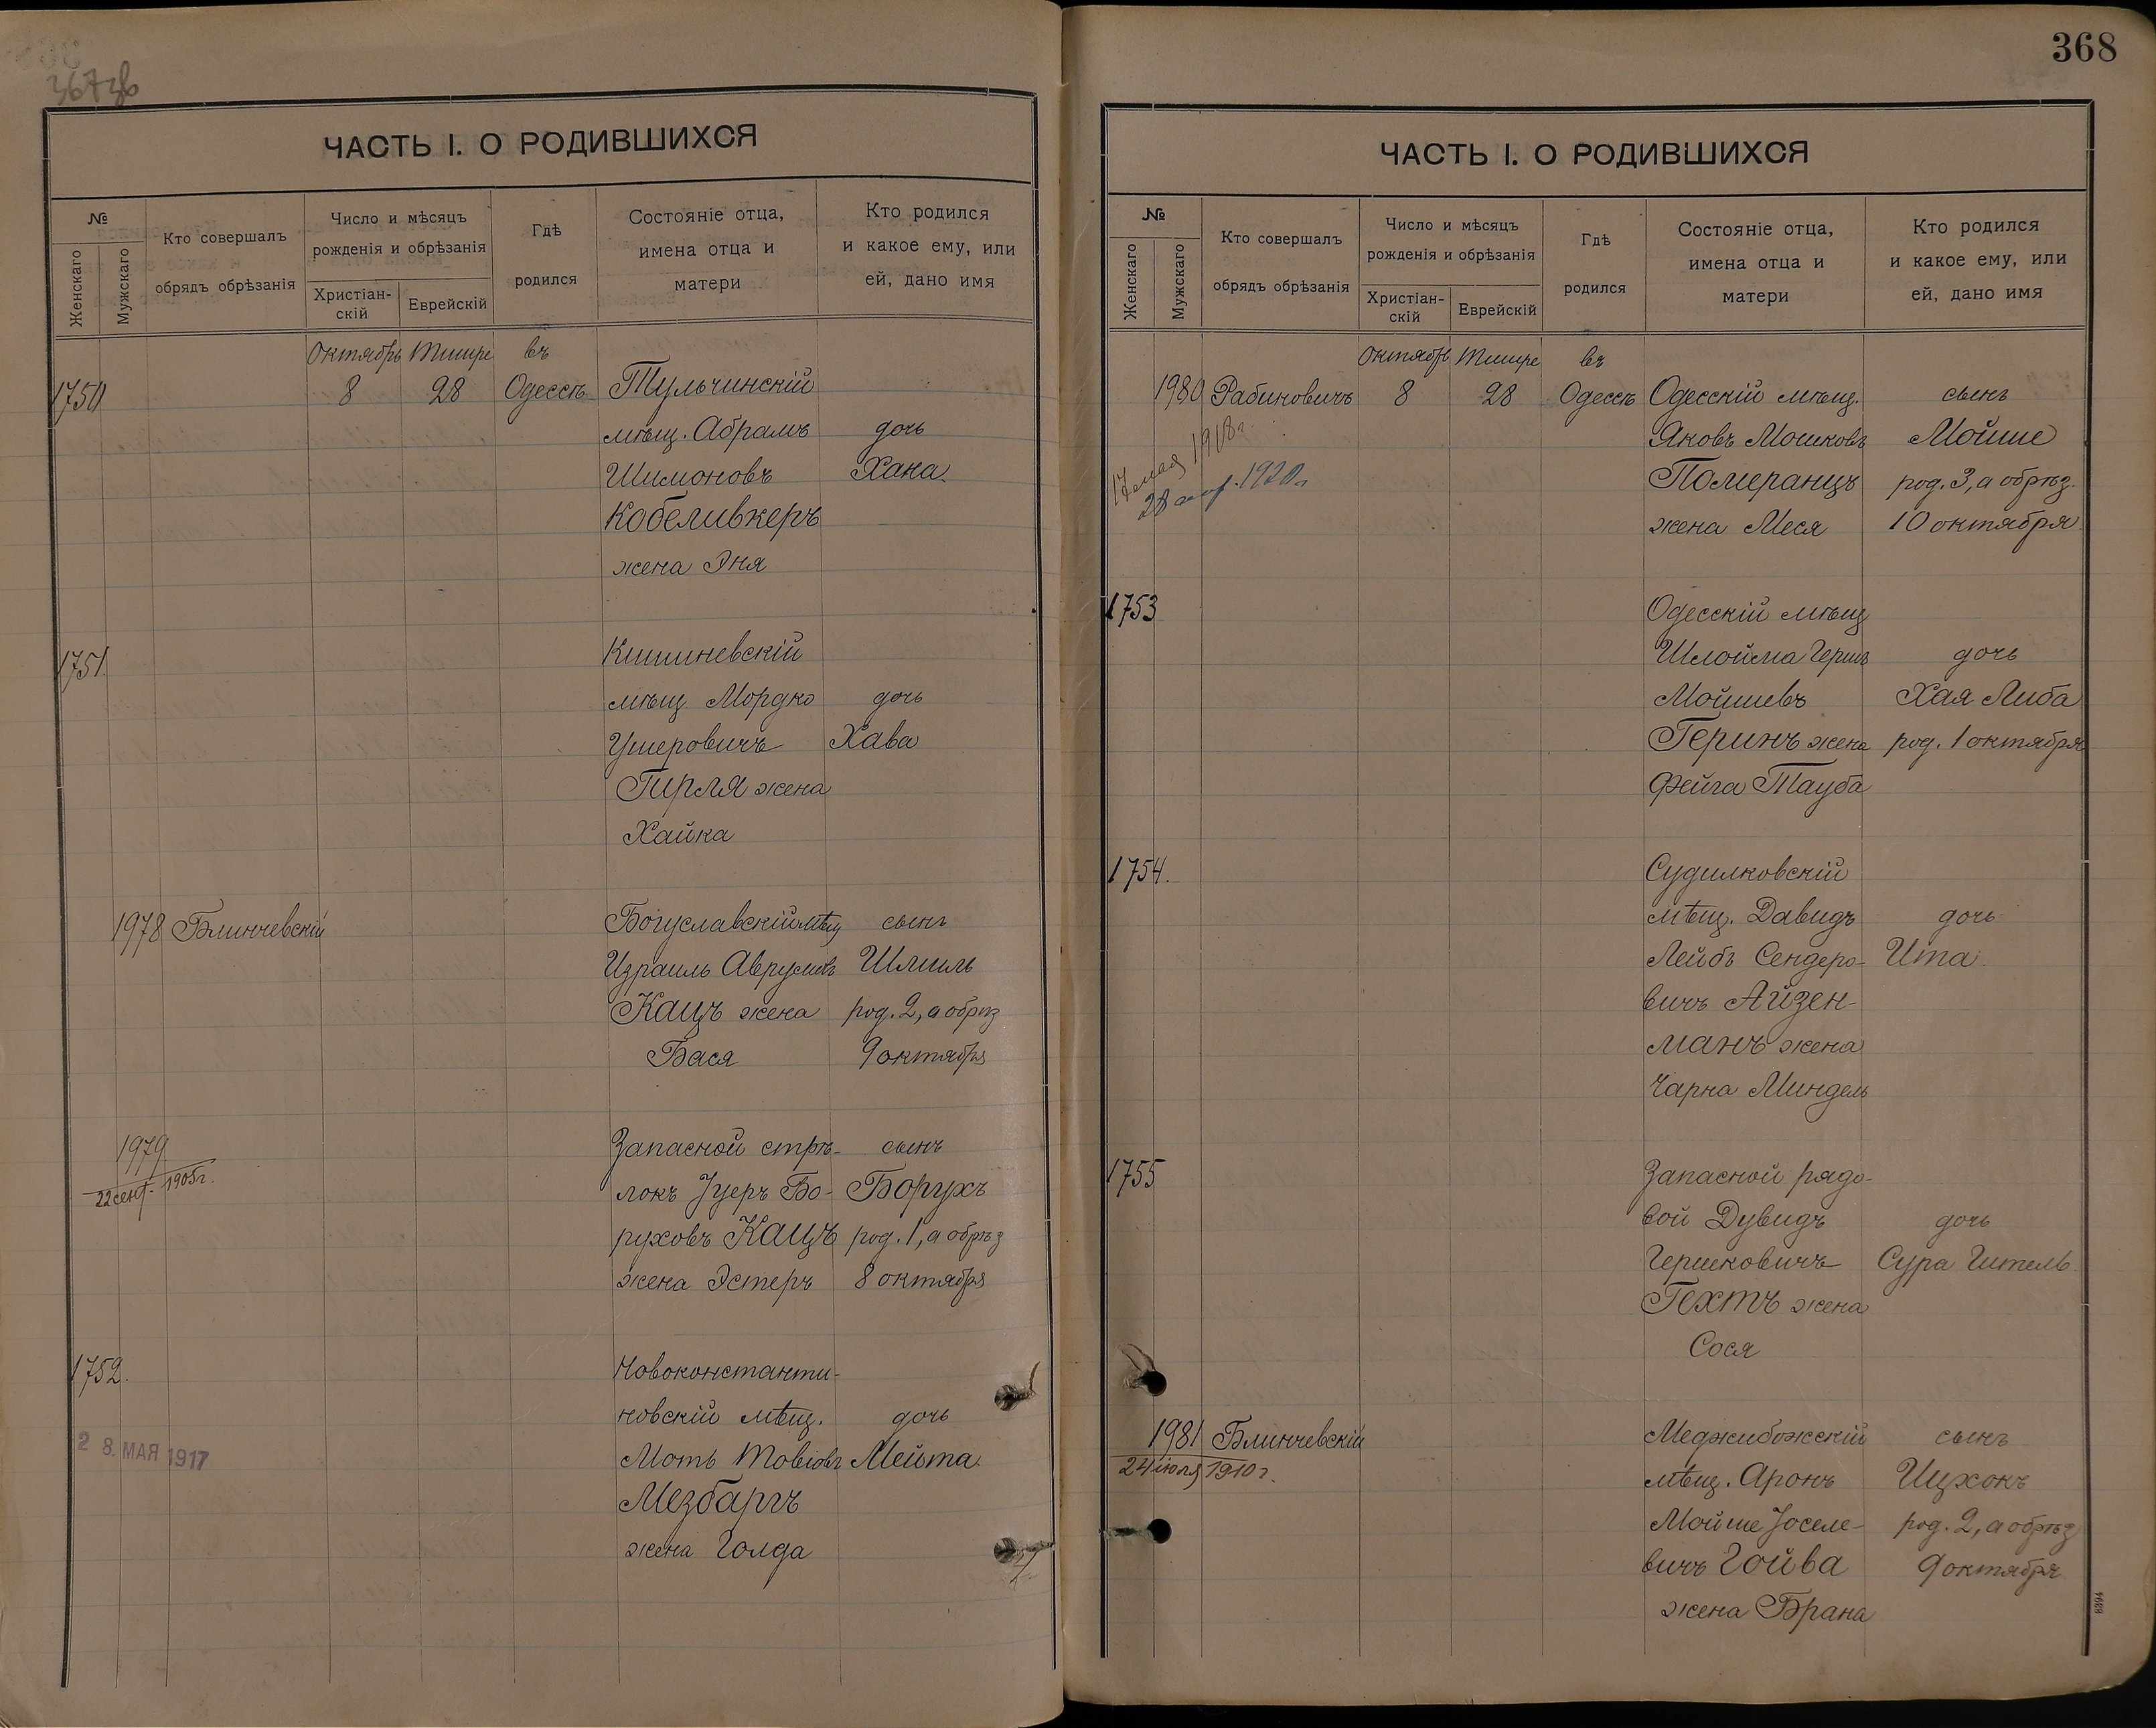 367зв
ЧАСТЬ I. О РОДИВШИХСЯ
№
Женскаго
Мужскаго
Кто совершалъ
обрядъ обрѣзанія
Число и мѣсяцъ
рожденія и обрѣзанія
Христіан-
скій
Еврейскій
Гдѣ
родился
Состояніе отца,
имена отца и
матери
Кто родился
и какое ему, или
ей, дано имя
Октябрь Тишре въ
1750 8 28 Одессѣ Тульчинскій
мѣщ. Абрамъ дочь
Шимоновъ Хана.
Кобеливкеръ
жена Эня
1751. Кишиневскій
мѣщ. Мордко дочь
Ушеровичъ Хава
Гирля жена
Хайка
1978 Блинчевскій Богуславскій мѣщ сынъ
Израиль Аврумовъ Шмиль
Кацъ жена род. 2, а обрѣз
Бася 9 октября
1979 Запасной стрѣ- сынъ
22 сент. 1905 г. локъ Іуеръ Бо- Борухъ
руховъ Кацъ род. 1, а обрѣз
жена Эстеръ 8 октября
1752. Новоконстанти-
новскій мѣщ. дочь
28. МАЯ 1917 Моть Товіовъ Мейта.
Мезбаргъ
жена Голда
368
ЧАСТЬ I. О РОДИВШИХСЯ
№
Женскаго
Мужскаго
Кто совершалъ
обрядъ обрѣзанія
Число и мѣсяцъ
рожденія и обрѣзанія
Христіан-
скій
Еврейскій
Гдѣ
родился
Состояніе отца,
имена отца и
матери
Кто родился
и какое ему, или
ей, дано имя
Октябрь Тишре въ
1980 Рабиновичъ 8 28 Одессѣ Одесскій мѣщ. сынъ
17 мая 1918 г. Яковъ Мошковъ Мойше
28 апр. 1920 г. Померанцъ род. 3, а обрѣз.
жена Меся 10 октября
1753 Одесскій мѣщ
Шлойма Гершъ дочь
Мойшевъ Хая Либа
Геринъ жена род. 1 октября
Фейга Тауба
1754. Судилковскій
мѣщ. Давидъ дочь
Лейбъ Сендеро- Ита.
вичъ Айзен-
манъ жена
Чарна Миндель
1755 Запасной рядо-
вой Дувидъ дочь
Гершковичъ Сура Гитель.
Гехтъ жена
Сося
1981 Блинчевскій Меджибожскій сынъ
24 іюля 1910 г. мѣщ. Аронъ Ицхокъ
Мойше Іоселе- род. 2, а обрѣз
вичъ Гойва 9 октября
жена Брана
8394